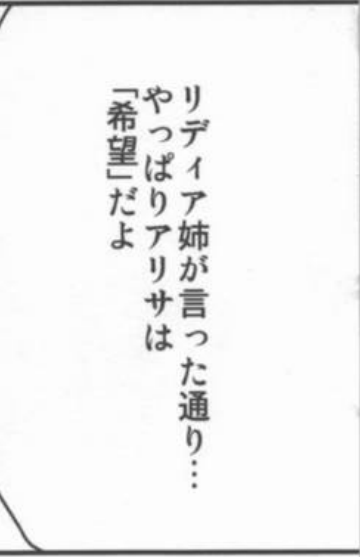 リディア姉が言った通り…
やっぱりアリサは
「希望」だよ